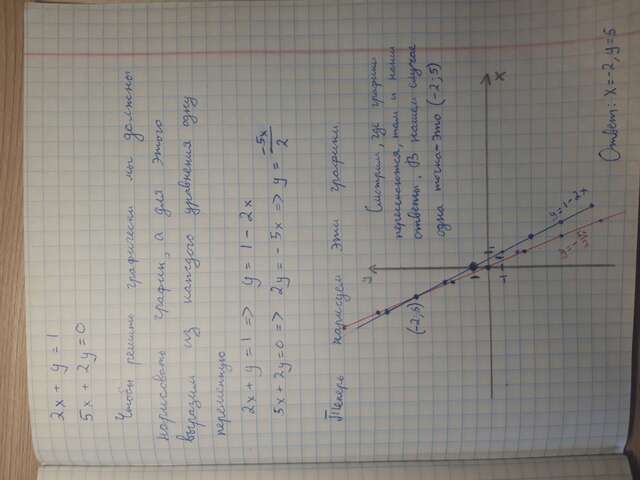 2x + y = 1
5x + 2y = 0
Чтобы решить графически мы должны
нарисовать график, а для этого
выразим из каждого уравнения одну
переменную
2x + y = 1 => y = 1 - 2x
5x + 2y = 0 => 2y = -5x => y = -5x/2
Теперь нарисуем эти графики
Смотрим, где графики
пересекаются, там и наши
ответы. В нашем случае
одна точка - это (-2; 5)
y
x
(-2; 5)
1
1
y = 1 - 2x
y = -5x/2
Ответ: x = -2, y = 5